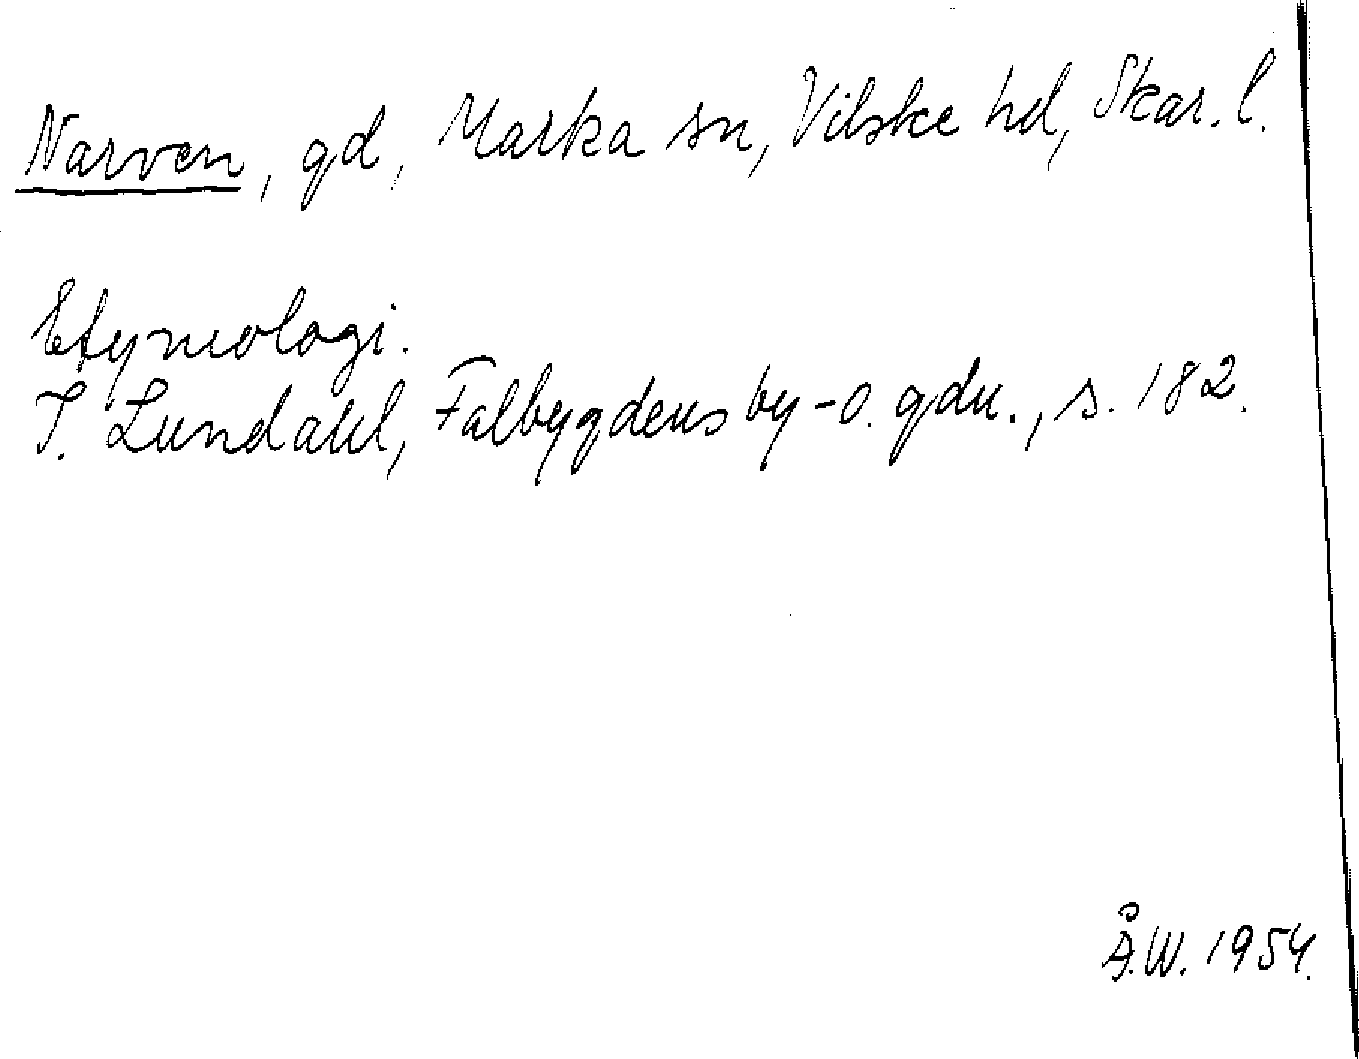 Narven, gd, Marka sn, Vilske hd, Skar. l.
Etymologi.
I. Lundahl, Falbygdens by- o. gdn., s. 182.
Å.W. 1954.